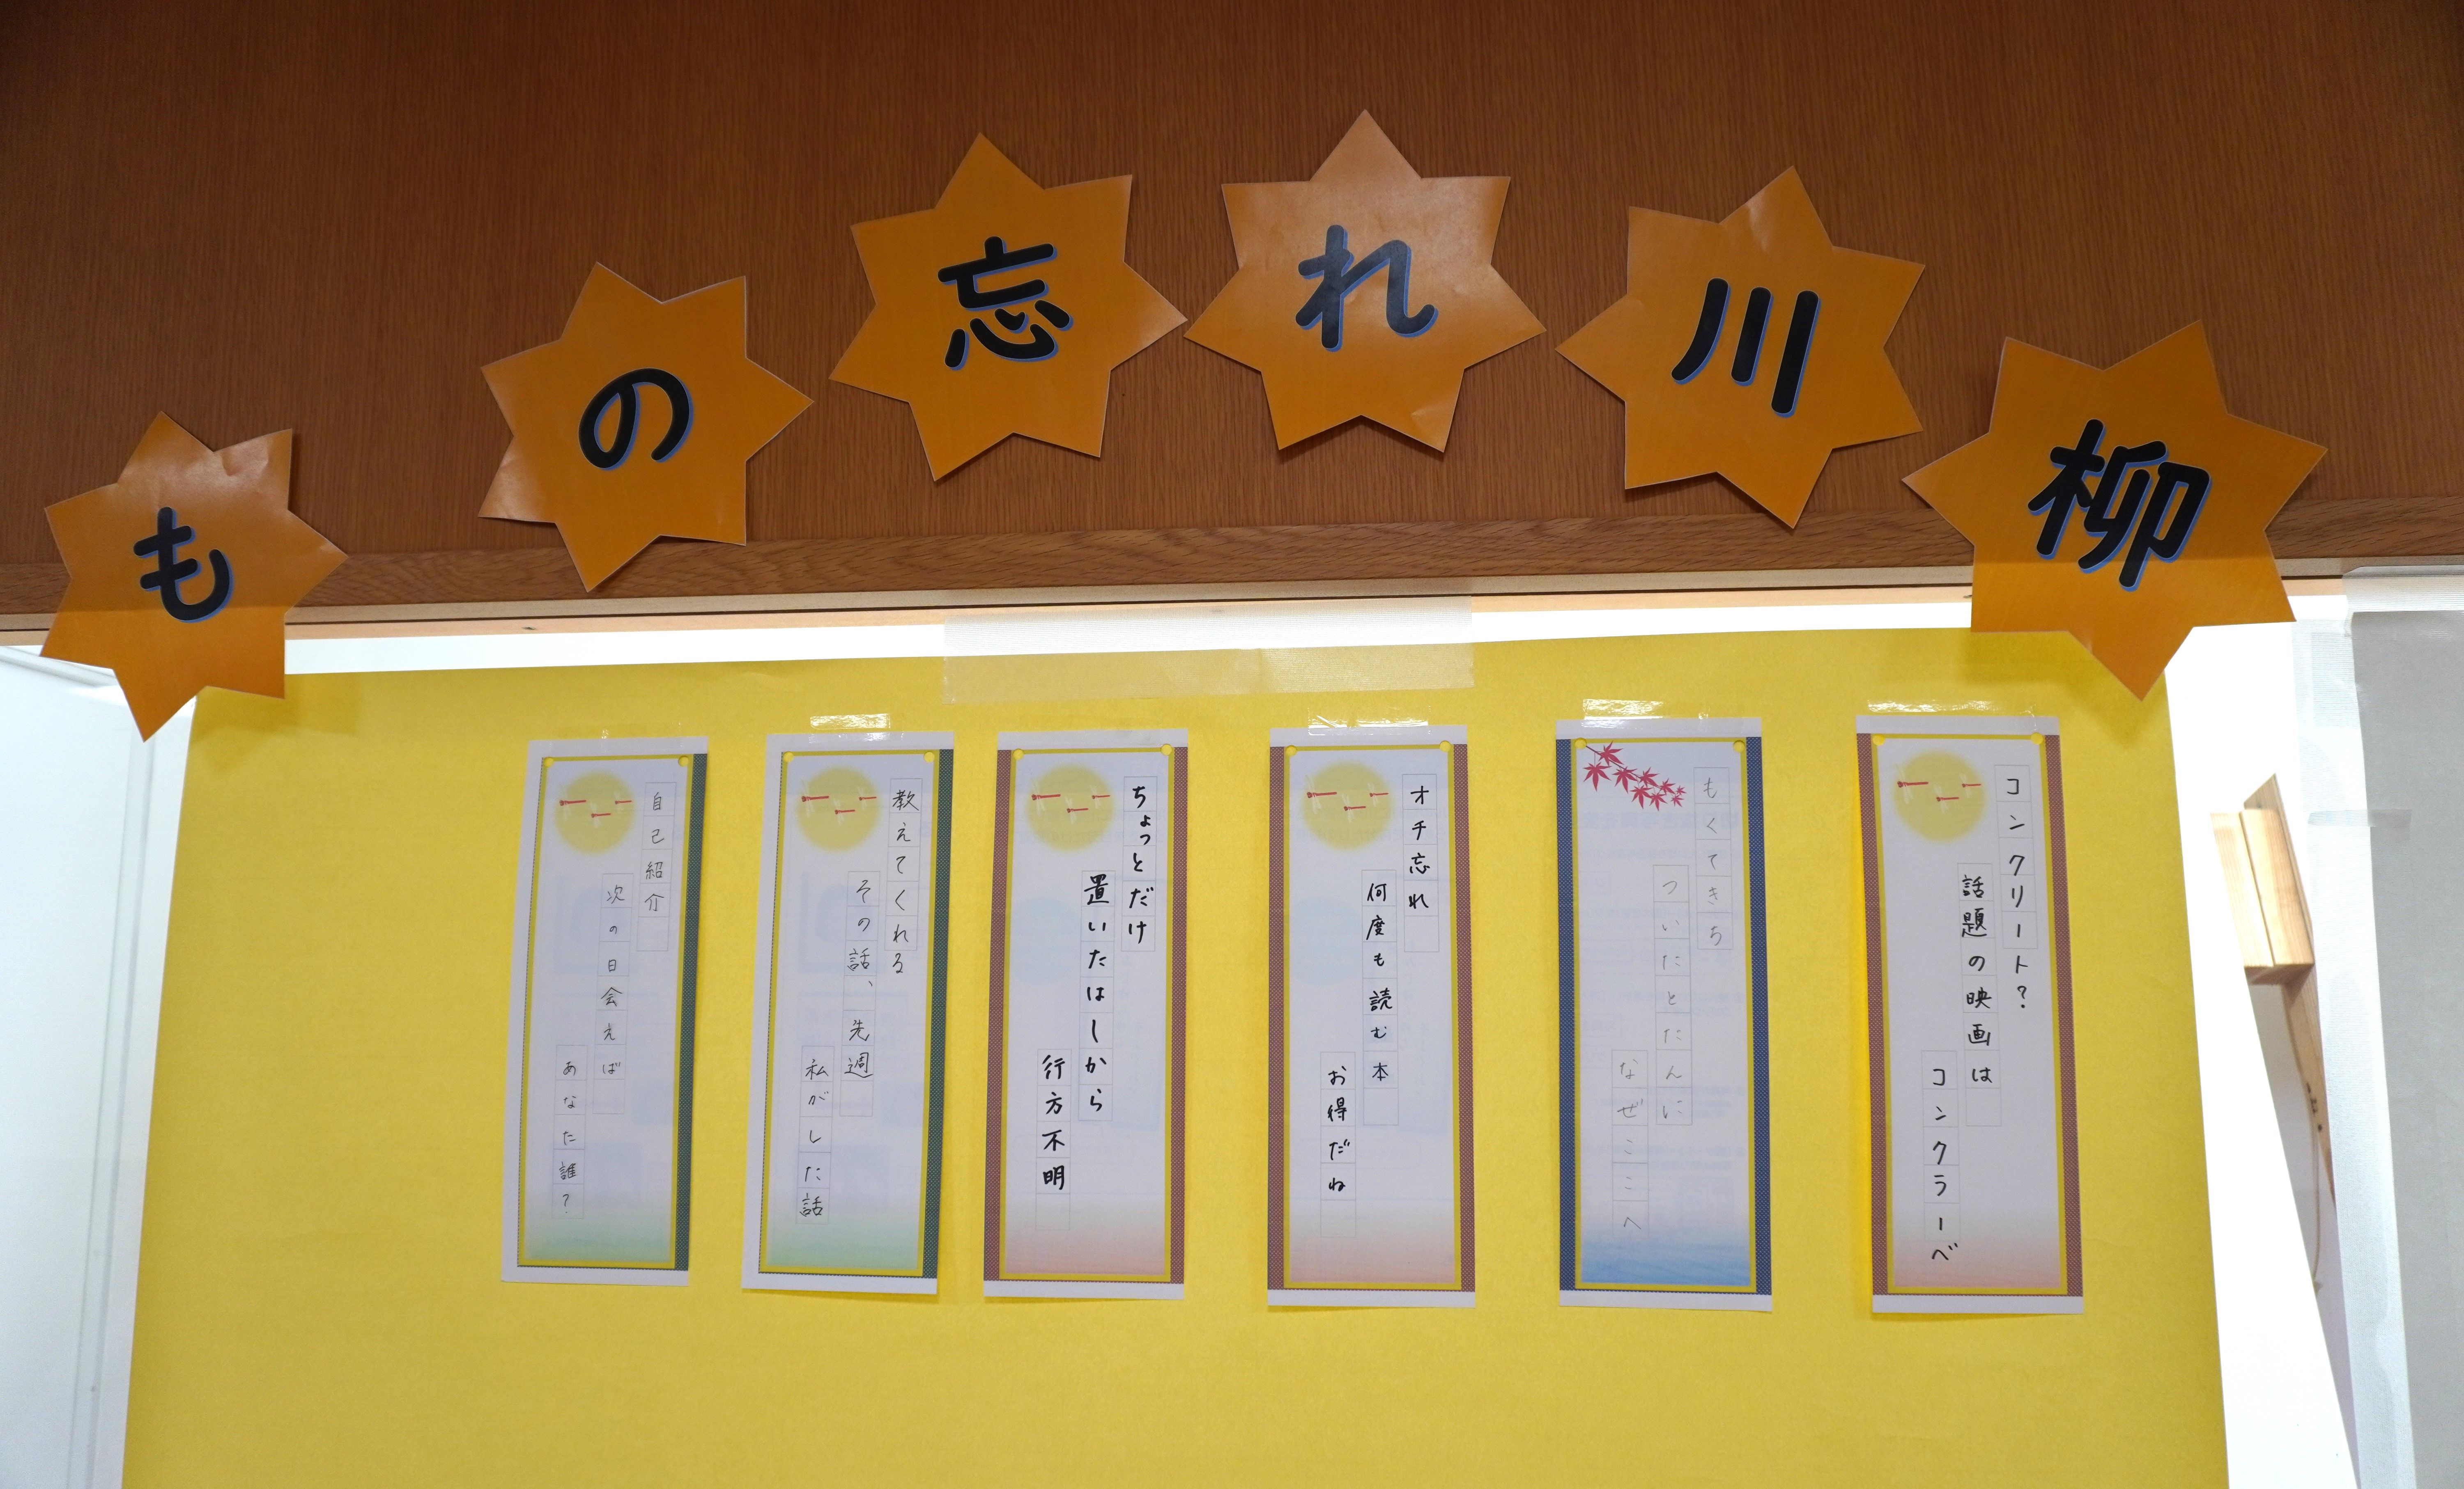 もの忘れ川柳
コンクリート?
話題の映画は
コンクラーベ
もくてきち
ついたとたんに
なぜここへ
オチ忘れ
何度も読む本
お得だね
ちょっとだけ
置いたはしから
行方不明
教えてくれる
その話、先週
私がした話
自己紹介
次の日会えば
あなた誰?